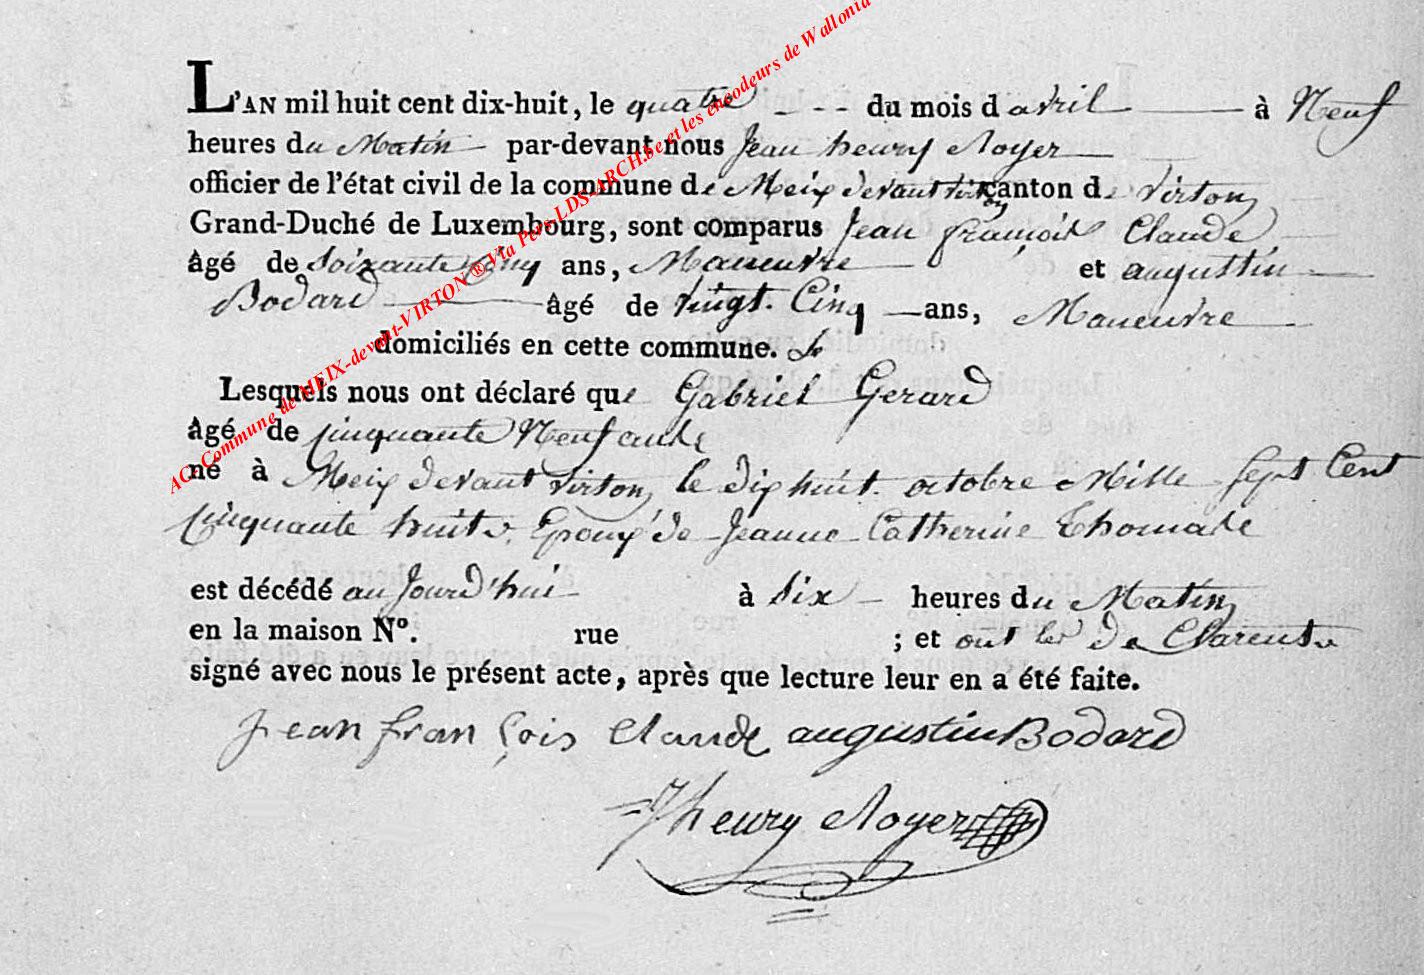 L'AN mil huit cent dix-huit, le quatre du mois d avril à Neuf
heures du Matin par-devant nous Jean henry Noyer
officier de l'état civil de la commune de Meix devant virton canton de virton
Grand-Duché de Luxembourg, sont comparus Jean françois Claude
âgé de soixante cinq ans, Maneuvre et augustin
Bodard âgé de vingt Cinq ans, Maneuvre
domiciliés en cette commune.
Lesquels nous ont déclaré que Gabriel Gerard
âgé de cinquante Neuf ans
né à Meix devant virton, le dix huit octobre Mille Sept Cent
cinquante huit, Epoux de Jeanne Catherine Thomase
est décédé au Jourd'hui à six heures du Matin
en la maison N°. rue ; et ont les de Clarents
signé avec nous le présent acte, après que lecture leur en a été faite.
Jean fran çois Claude augustin Bodard
Jhenry Noyer
AC. Commune de MEIX-devant-VIRTON ® Via Pers-LDS-ARCH.be et les encodeurs de Wallonia